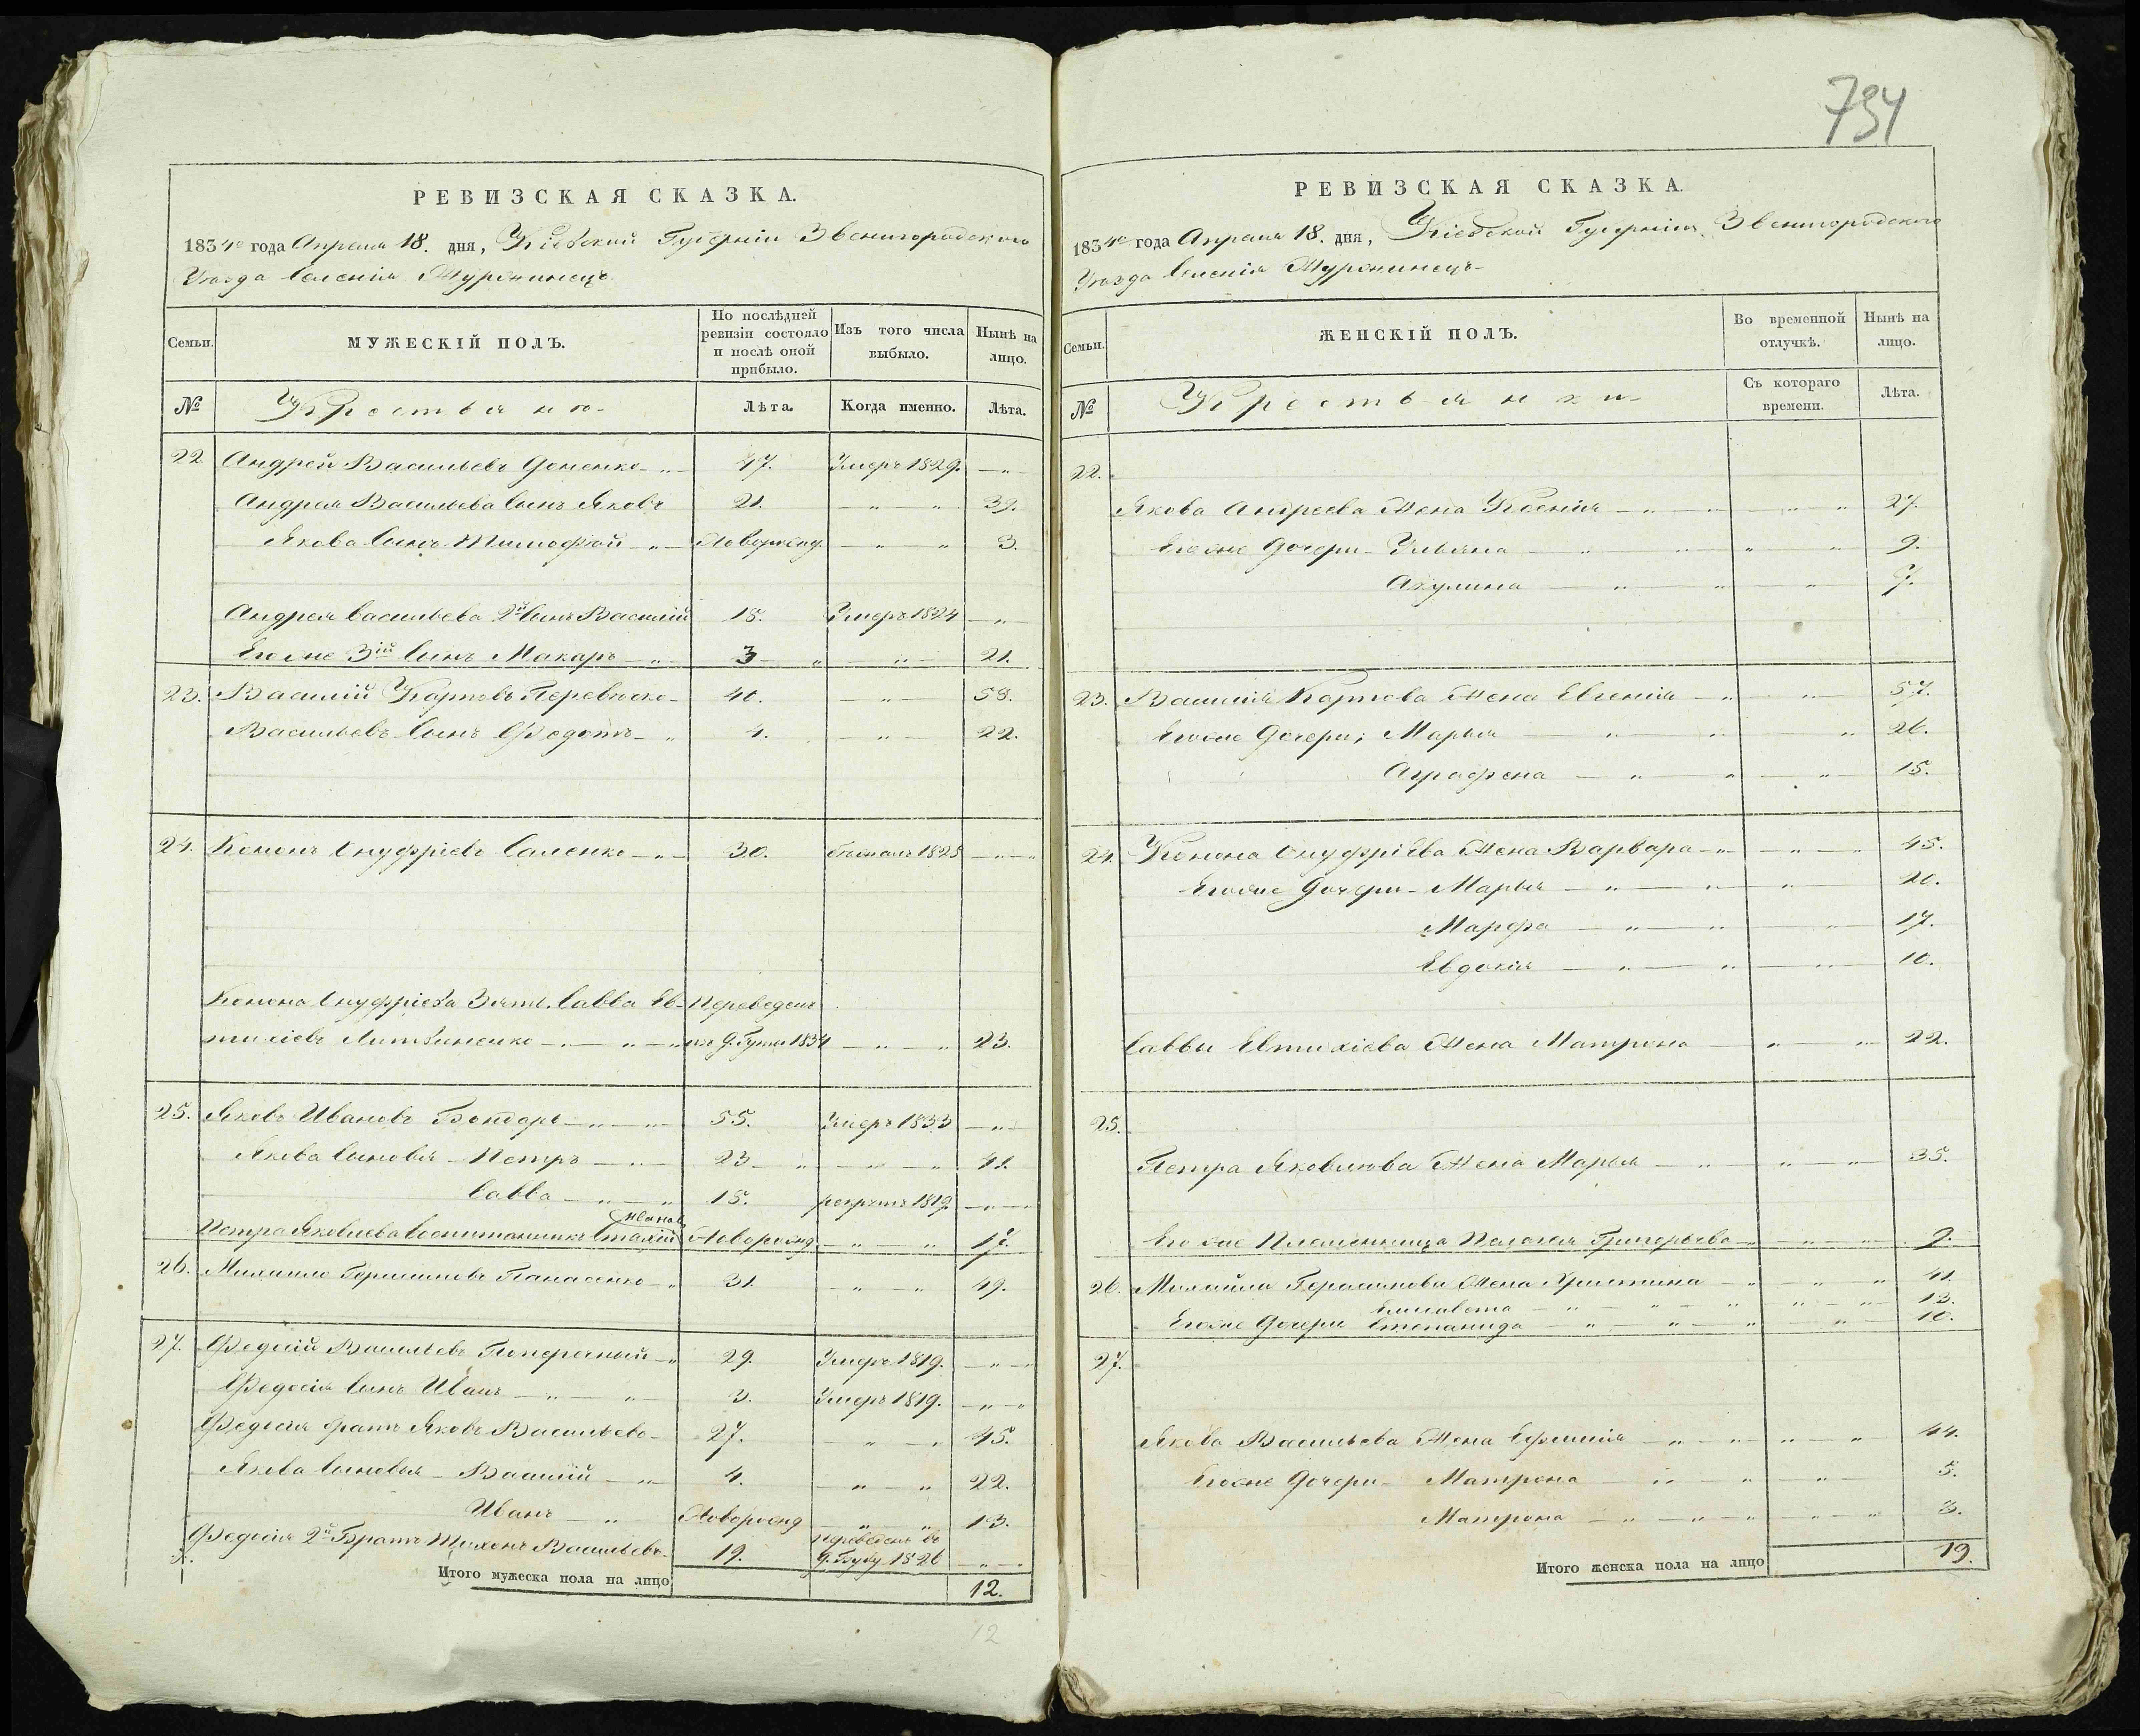 794
РЕВИЗСКАЯ СКАЗКА.
1834го года Апреля 18. дня, Кіевской Губерніи Звенигородскаго
Уезда Селенія Муринецъ
Семьи.
МУЖЕСКІЙ ПОЛЪ.
По послѣдней ревизіи состояло и послѣ оной прибыло.
Изъ того числа выбыло.
Нынѣ на лицо.
№ Крестьяне Лѣта. Когда именно. Лѣта.
22 Андрей Васильевъ Доненко 47. Умеръ 1829.
Андрея Васильева Сынъ Яковъ 21. 39.
Якова Сынъ Тимофей Новорожд. 3.
Андрея Васильева 2й Сынъ Василій 15. Умеръ 1824
Его же 3ій Сынъ Макаръ 3 21.
23. Василій Карповъ 40. 58.
Васильевъ Сынъ Федотъ 4. 22.
24. Кононъ Онуфріевъ Саленко 30. бежалъ 1825
Конона Онуфріева Зять Савва Ев- Переведенъ
тихіевъ Литвиненко изъ д. 1834 23.
25. Яковъ Ивановъ Бондарь 55. Умеръ 1833
Якова Сыновья Петръ 23 41.
Савва 15. рекрутъ 1819.
Иванов
Петра Яковлева воспитанникъ Новорожд. 17.
26. Михайло Герасимовъ Панасенко 31. 49.
27. Федосій Васильевъ Поперечный 29. Умеръ 1819.
Федосія Сынъ Иванъ 3. Умеръ 1819.
Федосія братъ Яковъ Васильевъ 27. 45.
Якова Сыновья Василій 4. 22.
Иванъ Новорожд 13.
Федосія 2й Братъ Тихонъ Васильевъ 19. переведенъ въ
д. 1826
Итого мужеска пола на лицо 12.
12
РЕВИЗСКАЯ СКАЗКА.
1834го года Апреля 18. дня, Кіевской Губерніи Звенигородскаго
Уезда Селенія Муринецъ
Семьи.
ЖЕНСКІЙ ПОЛЪ.
Во временной отлучкѣ.
Нынѣ на лицо.
№ Крестьянки Съ котораго времени. Лѣта.
22.
Якова Андреева Жена Ксенія 27.
Его же Дочери Ульяна 9.
Акулина 7.
23. Василія Карпова Жена Евгенія 57.
Его же Дочери; Марья 26.
Аграфена 15.
24. Конона Онуфріева Жена Варвара 45.
Его же Дочери Марья 20.
Марфа 17.
Евдокія 10.
Саввы Евтихіева Жена Матрона 22.
25.
Петра Яковлева Жена Марья 35.
Его же Племянница Пелагея Григорьева 9.
26. Михайла Герасимова Жена Христина 41.
Елисавета 13.
Его же Дочери Степанида 10.
27.
Якова Васильева Жена Ефимія 44.
Его же Дочери Матрона 5.
Матрона 3.
Итого женска пола на лицо 19.